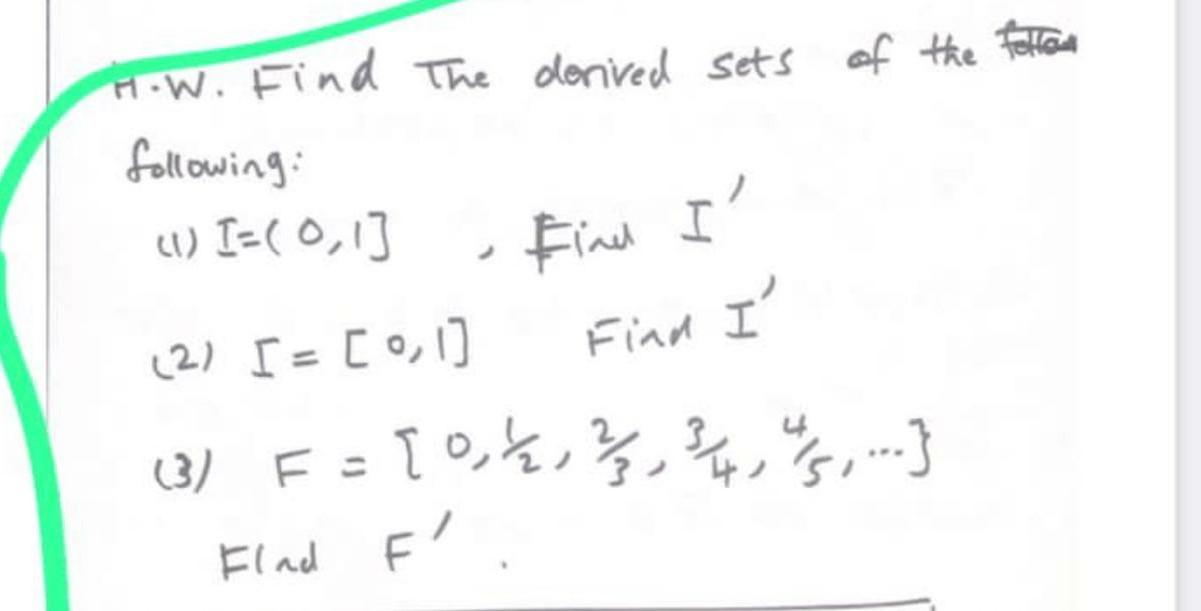 H.W. Find The derived sets of the
following:
(1) I=(0,1] , Find I'
(2) I = [0,1] Find I'
(3) F = {0, 1/2, 2/3, 3/4, 4/5, ...}
Find F'.